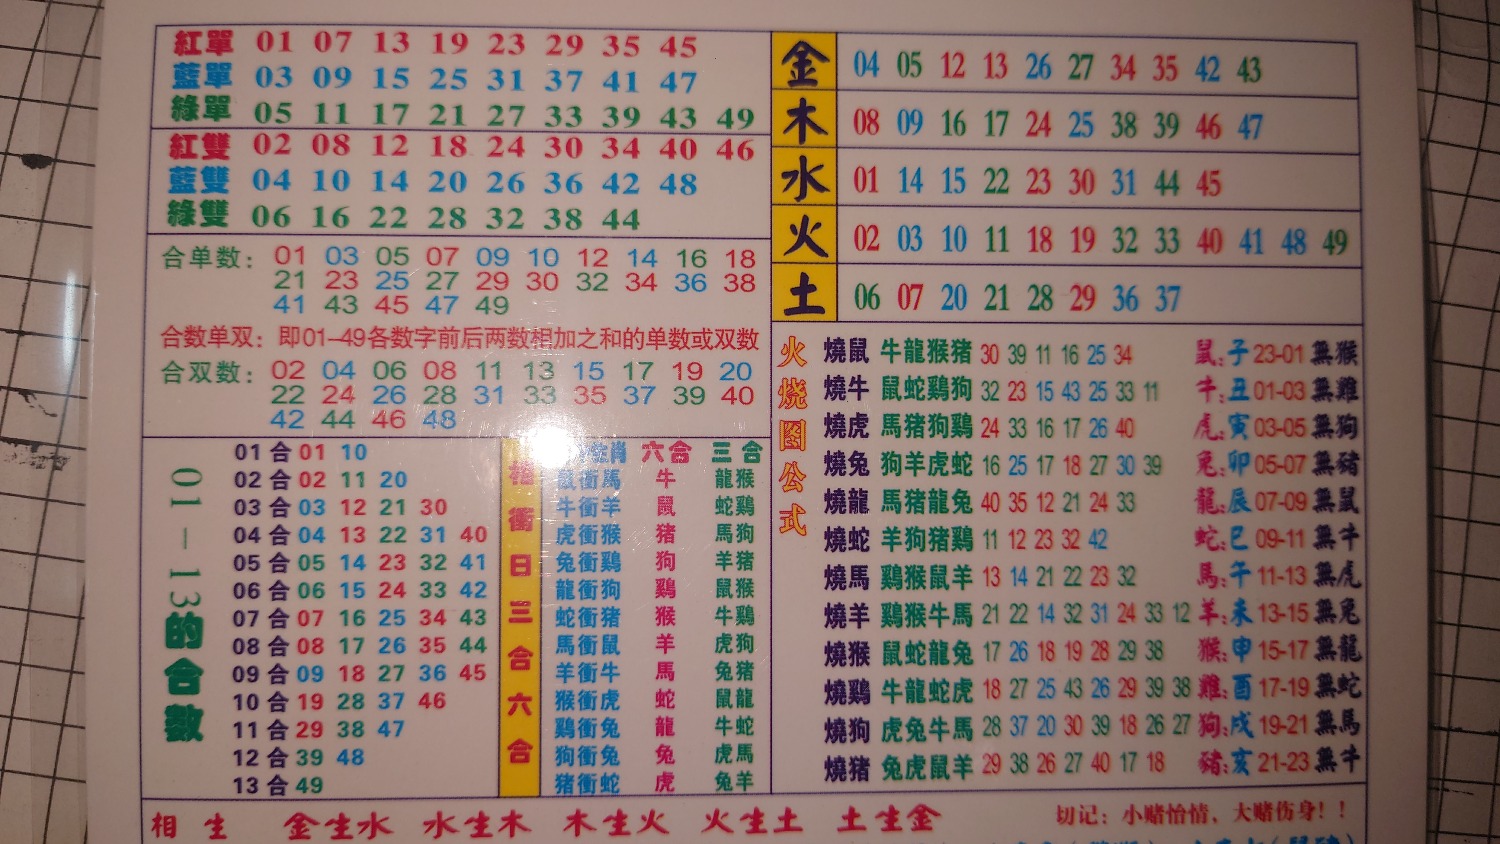 紅單 01 07 13 19 23 29 35 45
藍單 03 09 15 25 31 37 41 47
綠單 05 11 17 21 27 33 39 43 49
紅雙 02 08 12 18 24 30 34 40 46
藍雙 04 10 14 20 26 36 42 48
綠雙 06 16 22 28 32 38 44
合单数: 01 03 05 07 09 10 12 14 16 18
21 23 25 27 29 30 32 34 36 38
41 43 45 47 49
合数单双: 即01-49各数字前后两数相加之和的单数或双数
合双数: 02 04 06 08 11 13 15 17 19 20
22 24 26 28 31 33 35 37 39 40
42 44 46 48
01-13的合数
01 合 01 10
02 合 02 11 20
03 合 03 12 21 30
04 合 04 13 22 31 40
05 合 05 14 23 32 41
06 合 06 15 24 33 42
07 合 07 16 25 34 43
08 合 08 17 26 35 44
09 合 09 18 27 36 45
10 合 19 28 37 46
11 合 29 38 47
12 合 39 48
13 合 49
衝日三合六合
肖 六合 三合
鼠衝馬 牛 龍猴
牛衝羊 鼠 蛇鷄
虎衝猴 猪 馬狗
兔衝鷄 狗 羊猪
龍衝狗 鷄 鼠猴
蛇衝猪 猴 牛鷄
馬衝鼠 羊 虎狗
羊衝牛 馬 兔猪
猴衝虎 蛇 鼠龍
鷄衝兔 龍 牛蛇
狗衝龍 兔 虎馬
猪衝蛇 虎 兔羊
金 04 05 12 13 26 27 34 35 42 43
木 08 09 16 17 24 25 38 39 46 47
水 01 14 15 22 23 30 31 44 45
火 02 03 10 11 18 19 32 33 40 41 48 49
土 06 07 20 21 28 29 36 37
火烧图公式
燒鼠 牛龍猴猪 30 39 11 16 25 34 鼠:子 23-01 無猴
燒牛 鼠蛇鷄狗 32 23 15 43 25 33 11 牛:丑 01-03 無雞
燒虎 馬猪狗鷄 24 33 16 17 26 40 虎:寅 03-05 無狗
燒兔 狗羊虎蛇 16 25 17 18 27 30 39 兔:卯 05-07 無豬
燒龍 馬猪龍兔 40 35 12 21 24 33 龍:辰 07-09 無鼠
燒蛇 羊狗猪鷄 11 12 23 32 42 蛇:巳 09-11 無牛
燒馬 鷄猴鼠羊 13 14 21 22 23 32 馬:午 11-13 無虎
燒羊 鷄猴牛馬 21 22 14 32 31 24 33 12 羊:未 13-15 無兔
燒猴 鼠蛇龍兔 17 26 18 19 28 29 38 猴:申 15-17 無龍
燒鷄 牛龍蛇虎 18 27 25 43 26 29 39 38 雞:酉 17-19 無蛇
燒狗 虎兔牛馬 28 37 20 30 39 18 26 27 狗:戌 19-21 無馬
燒猪 兔虎鼠羊 29 38 26 27 40 17 18 豬:亥 21-23 無牛
相生 金生水 水生木 木生火 火生土 土生金
切记: 小赌怡情、大赌伤身!!